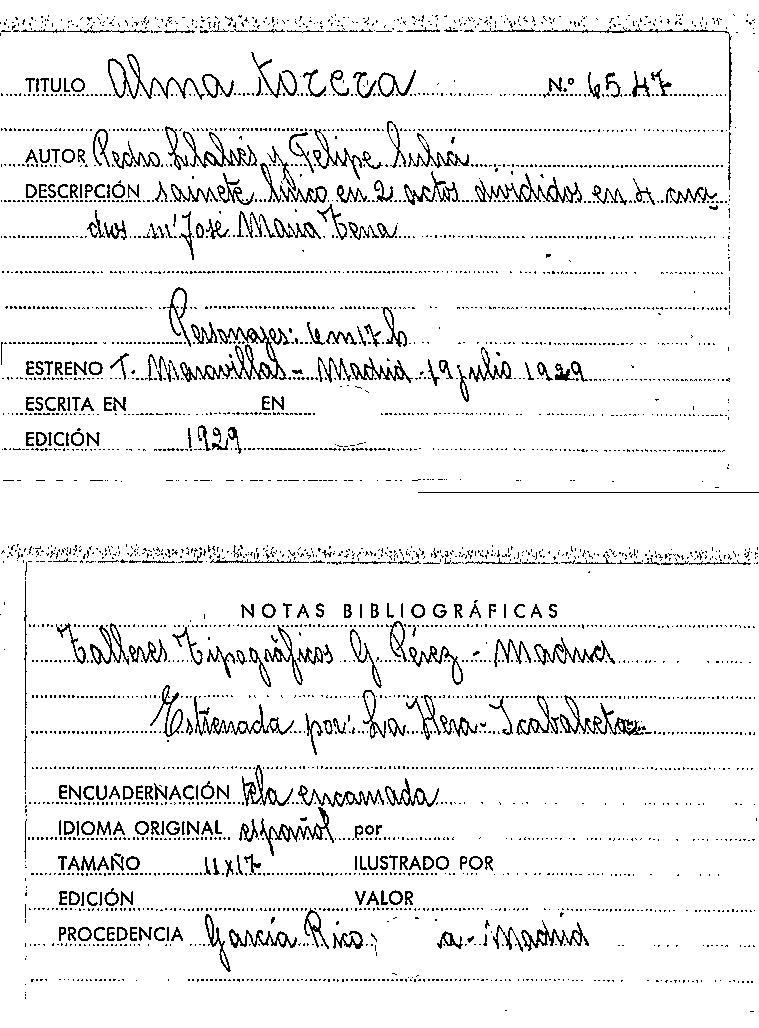 TITULO Alma torera N.º 6547
AUTOR Pedro Llabrés y Felipe
DESCRIPCIÓN sainete lírico en 2 actos divididos en 4 cua-
dros m' José Maria Tena
Personajes: 6 m 17 h
ESTRENO T. Maravillas - Madrid - 19 julio 1929
ESCRITA EN EN
EDICIÓN 1929
NOTAS BIBLIOGRÁFICAS
Talleres Tipográficos G Pérez - Madrid
Estrenada por: La Hera -
ENCUADERNACIÓN tela encarnada
IDIOMA ORIGINAL español por
TAMAÑO 11x17 ILUSTRADO POR
EDICIÓN VALOR
PROCEDENCIA García Rico, a - Madrid